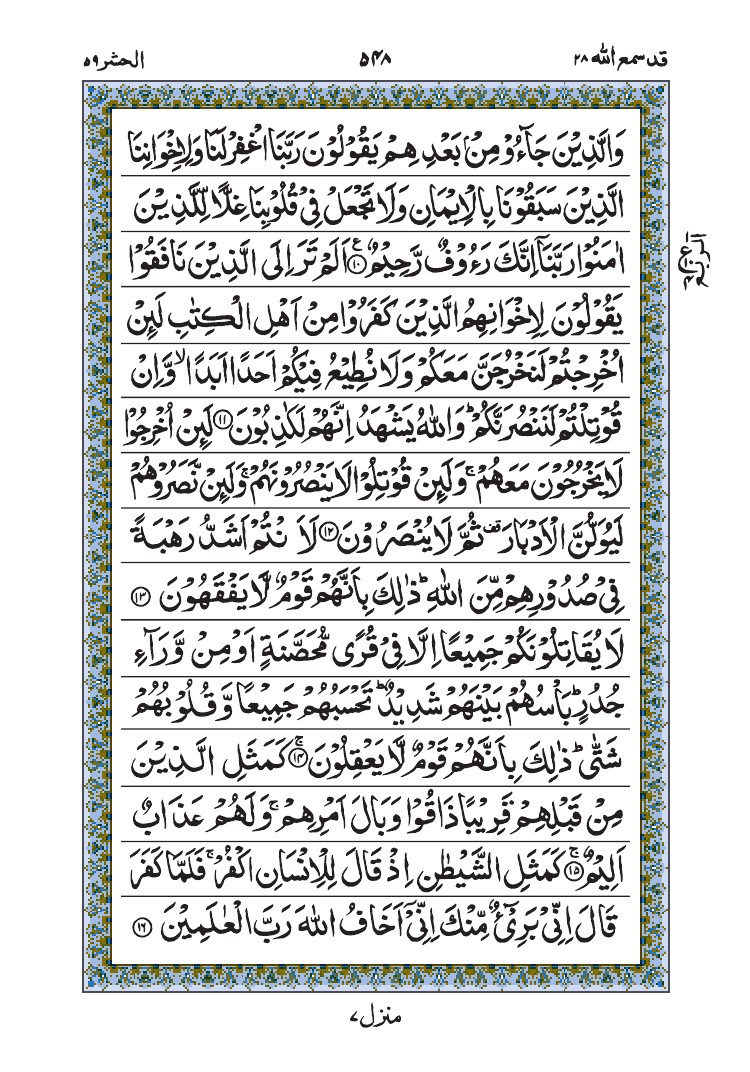 قد سمع الله ۲۸
۵۴۸
الحشر ۵۹
وَالَّذِیْنَ جَآءُوْ مِنْۢ بَعْدِ هِمْ یَقُوْلُوْنَ رَبَّنَا اغْفِرْ لَنَا وَلِاِخْوَانِنَا
الَّذِیْنَ سَبَقُوْنَا بِالْاِیْمَانِ وَلَا تَجْعَلْ فِیْ قُلُوْبِنَا غِلًّا لِّلَّذِیْنَ
اٰمَنُوْا رَبَّنَاۤ اِنَّكَ رَءُوْفٌ رَّحِیْمٌ ﴿۱۰﴾ۧ اَلَمْ تَرَ اِلَی الَّذِیْنَ نَافَقُوْا
یَقُوْلُوْنَ لِاِخْوَانِهِمُ الَّذِیْنَ كَفَرُوْا مِنْ اَهْلِ الْكِتٰبِ لَىِٕنْ
اُخْرِجْتُمْ لَنَخْرُجَنَّ مَعَكُمْ وَلَا نُطِیْعُ فِیْكُمْ اَحَدًا اَبَدًا ۙ وَّاِنْ
قُوْتِلْتُمْ لَنَنْصُرَنَّكُمْ ؕ وَاللّٰهُ یَشْهَدُ اِنَّهُمْ لَكٰذِبُوْنَ ﴿۱۱﴾ لَىِٕنْ اُخْرِجُوْا
لَا یَخْرُجُوْنَ مَعَهُمْ ۚ وَلَىِٕنْ قُوْتِلُوْا لَا یَنْصُرُوْنَهُمْ ۚ وَلَىِٕنْ نَّصَرُوْهُمْ
لَیُوَلُّنَّ الْاَدْبَارَ ۫ ثُمَّ لَا یُنْصَرُوْنَ ﴿۱۲﴾ لَاَ نْتُمْ اَشَدُّ رَهْبَةً
فِیْ صُدُوْرِهِمْ مِّنَ اللّٰهِ ؕ ذٰلِكَ بِاَنَّهُمْ قَوْمٌ لَّا یَفْقَهُوْنَ ﴿۱۳﴾
لَا یُقَاتِلُوْنَكُمْ جَمِیْعًا اِلَّا فِیْ قُرًی مُّحَصَّنَةٍ اَوْ مِنْ وَّرَآءِ
جُدُرٍ ؕ بَاْسُهُمْ بَیْنَهُمْ شَدِیْدٌ ؕ تَحْسَبُهُمْ جَمِیْعًا وَّقُلُوْبُهُمْ
شَتّٰی ؕ ذٰلِكَ بِاَنَّهُمْ قَوْمٌ لَّا یَعْقِلُوْنَ ﴿۱۴﴾ۚ كَمَثَلِ الَّذِیْنَ
مِنْ قَبْلِهِمْ قَرِیْبًا ذَاقُوْا وَبَالَ اَمْرِهِمْ ۚ وَلَهُمْ عَذَابٌ
اَلِیْمٌ ﴿۱۵﴾ۚ كَمَثَلِ الشَّیْطٰنِ اِذْ قَالَ لِلْاِنْسَانِ اكْفُرْ ۚ فَلَمَّا كَفَرَ
قَالَ اِنِّیْ بَرِیْٓءٌ مِّنْكَ اِنِّیْۤ اَخَافُ اللّٰهَ رَبَّ الْعٰلَمِیْنَ ﴿۱۶﴾
منزل ۷